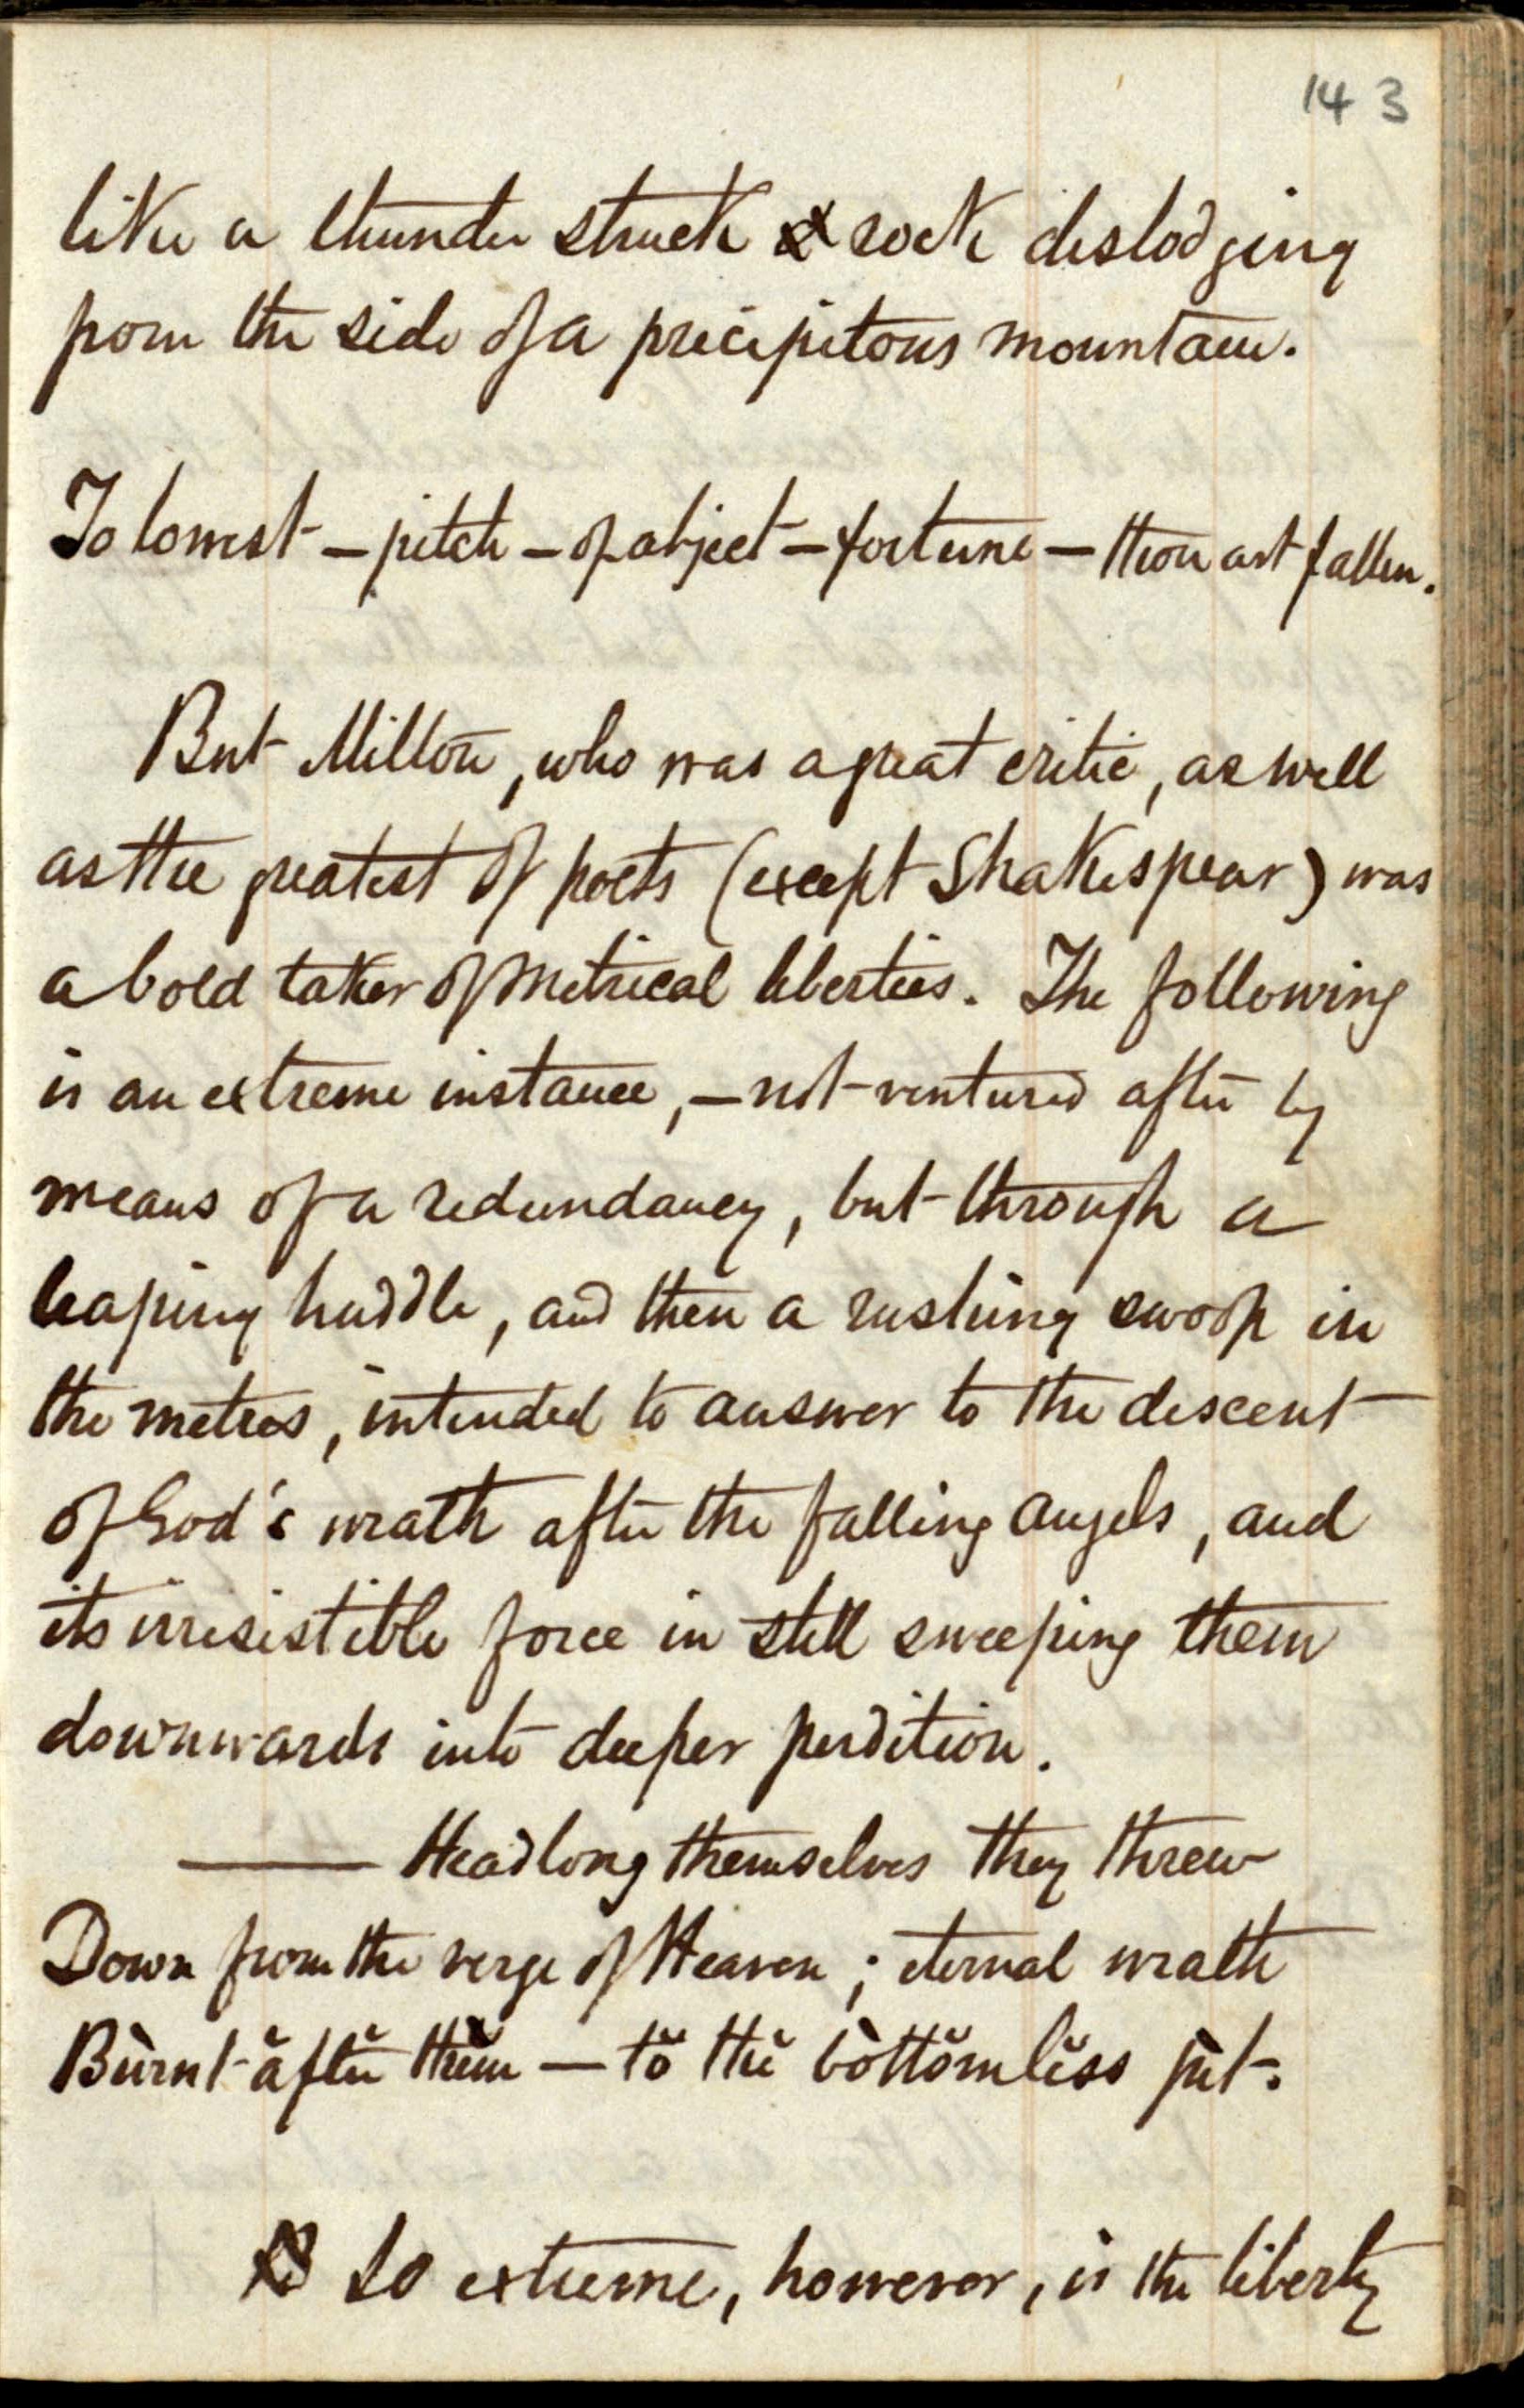 143
like a thunder struck rock dislodging
from the side of a precipitous mountain.
To lowest — pitch — of abject — fortune — thou art fallen.
But Milton, who was a great critic, as well
as the greatest of poets (except Shakespear) was
a bold taker of metrical liberties. The following
is an extreme instance, — not ventured after by
means of a redundancy, but through a
leaping huddle, and then a rushing swoop in
the metres, intended to answer to the descent
of God's wrath after the falling angels, and
its irresistible force in still sweeping them
downwards into deeper perdition.
—— Headlong themselves they threw
Down from the verge of Heaven; eternal wrath
Bùrnt ăftĕr thĕm — tŏ thĕ bòttŏmlĕss pìt.
So extreme, however, is the liberty